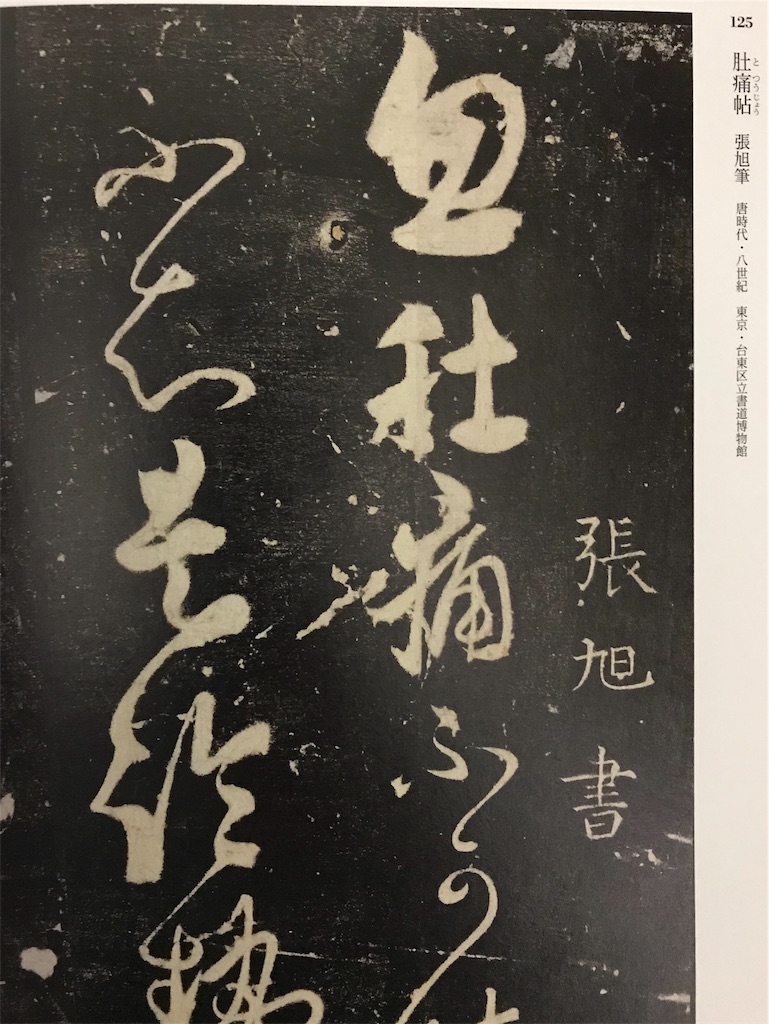 125
肚痛帖 張旭筆 唐時代・八世紀 東京・台東区立書道博物館
とつうじょう
張旭書
忽肚痛不可
不知是冷熱